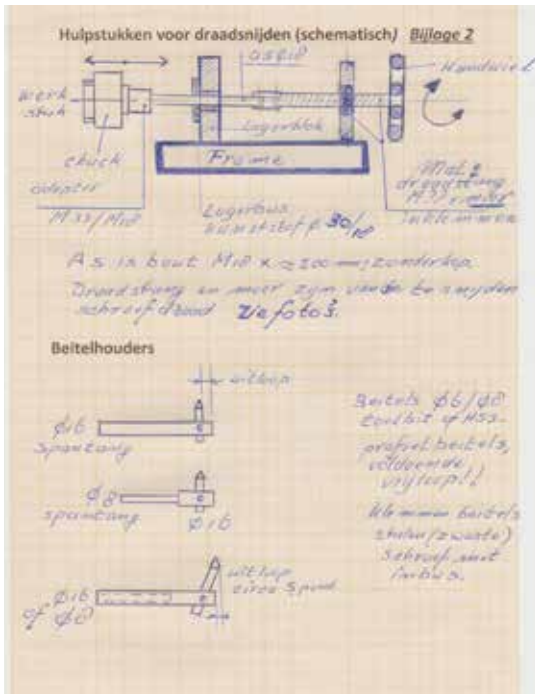 Hulpstukken voor draadsnijden (schematisch) Bijlage 2
as Ø18
Handwiel
werk
stuk
Lagerblok
chuck
Frame
adapter
M33/M18
Lagerbus
kunststof Ø 30/18
Mal:
draadstang
M??
inklemmen
As is bout M18 x ≈ 200 mm; zonder kop
Draadstang en moer zijn van de te snijden
schroefdraad zie foto's.
Beitelhouders
uitloop
Ø16
spantang
Ø8
spantang
Ø16
uitloop
circa 5 mm
Ø16
of Ø8
Beitels Ø6/Ø8
toolbit of HSS.
profiel beitels,
voldoende
vrijloop!!
Klemmen beitels
stalen (zwarte)
schroef met
inbus.